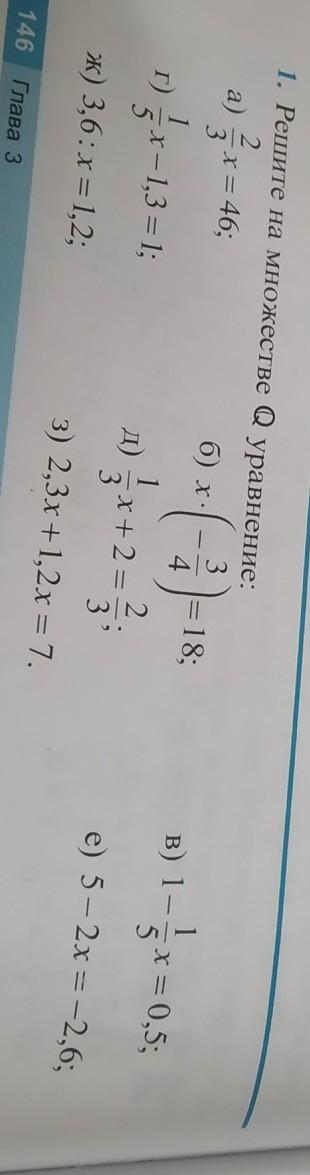 1. Решите на множестве ℚ уравнение:
а) 2/3 x = 46; б) x · (−3/4) = 18; в) 1 − 1/5 x = 0,5;
г) 1/5 x − 1,3 = 1; д) 1/3 x + 2 = 2/3; е) 5 − 2x = −2,6;
ж) 3,6 : x = 1,2; з) 2,3x + 1,2x = 7.
146 Глава 3